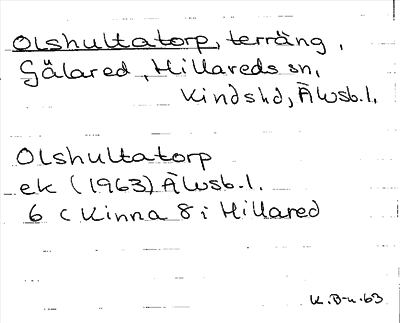 Olshultatorp, terräng,
Gälared, Hillareds sn,
Kindshd, Älvsb.l.
Olshultatorp
ek (1963) Älvsb.l.
6 c Kinna 8 i Hillared
K.B-n.63